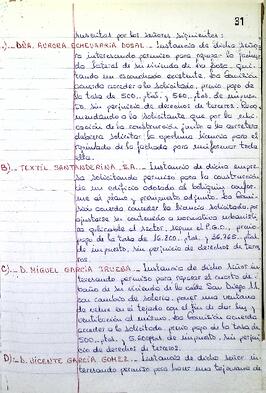 31
suscritas por los señores siguientes:
A).- DÑA. AURORA ECHEVARRIA DOSAL.- Instancia de dicha señora
interesando permiso para
lateral de su vivienda de
un escuchado existente. La Comisión
acuerda acceder a lo solicitado, previo pago de
la tasa de 500,- ptas, y 560,- ptas. de impuesto,
sin perjuicio de derechos de terceros.
mendando a la solicitante que por la
de la construcción junto a la carretera
debería solicitar la oportuna licencia para el
pintado de la fachada para uniformar toda
ella.
B).- TEXTIL SANTANDERINA, S.A.- Instancia de dicha empresa
solicitando permiso para la construcción
de un edificio adosado al
me al plano y presupuesto adjunto. La Comisión
acuerda conceder la licencia solicitada, por
ajustarse su contenido a normativa urbanística
aplicable al sector, según el P.G.O., previo
pago de la tasa de 16.200,- ptas, y 36.768,- ptas.
de impuesto, sin perjuicio de derechos de terceros.
C).- D. MIGUEL GARCIA TRUEBA.- Instancia de dicho señor interesando
permiso para reparar el cuarto de
baño de su vivienda de la calle San Diego 11,
con cambio de solería, poner una ventana
de velux en el tejado con el fin de dar luz y
ventilación al mismo. La Comisión acuerda
acceder a lo solicitado, previo pago de la tasa de
500,- ptas, y 5.600 ptas. de impuesto, sin perjuicio
de derechos de terceros.
D).- D. VICENTE GARCIA GOMEZ.- Instancia de dicho señor
interesando permiso para hacer una tejavana de